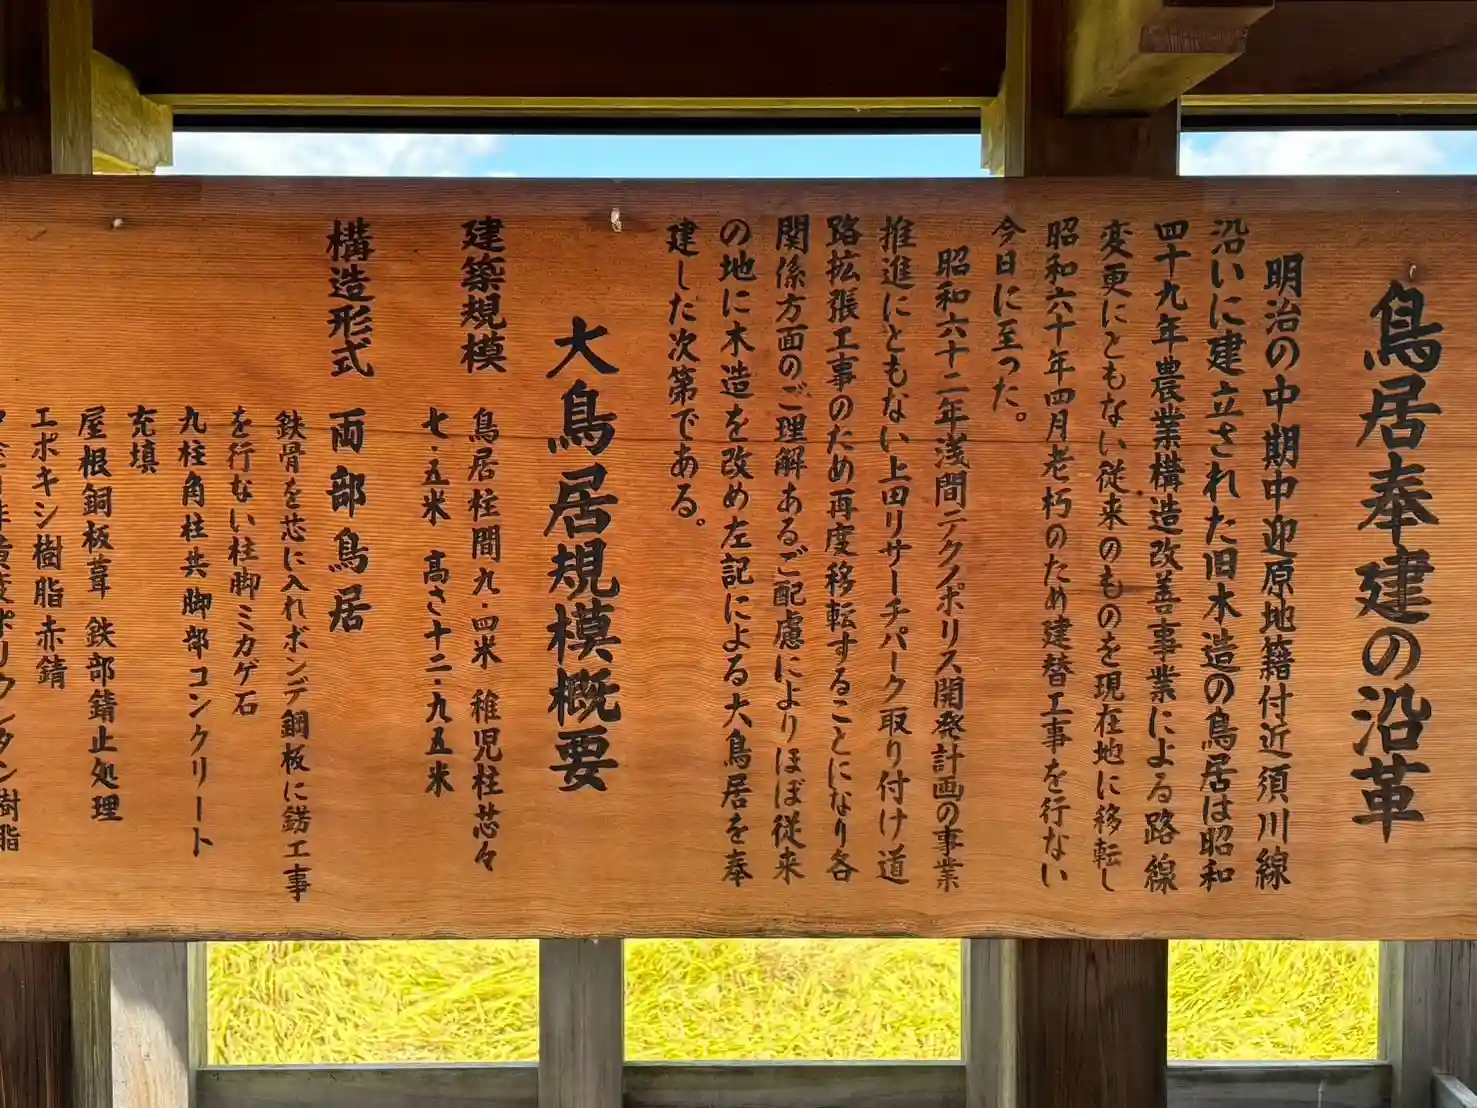 鳥居奉建の沿革
明治の中期中迎原地籍付近須川線
沿いに建立された旧木造の鳥居は昭和
四十九年農業構造改善事業による路線
変更にともない従来のものを現在地に移転し
昭和六十年四月老朽のため建替工事を行ない
今日に至った。
昭和六十二年浅間テクノポリス開発計画の事業
推進にともない上田リサーチパーク取り付け道
路拡張工事のため再度移転することになり各
関係方面のご理解あるご配慮によりほぼ従来
の地に木造を改め左記による大鳥居を奉
建した次第である。
大鳥居規模概要
建築規模 鳥居柱間九・四米 稚児柱芯々
七・五米 高さ十二・九五米
構造形式 両部鳥居
鉄骨を芯に入れボンデ鋼板に錺工事
を行ない柱脚ミカゲ石
丸柱角柱共脚部コンクリート
充填
屋根銅板葺 鉄部錆止処理
エポキシ樹脂赤錆
ポリウレタン樹脂